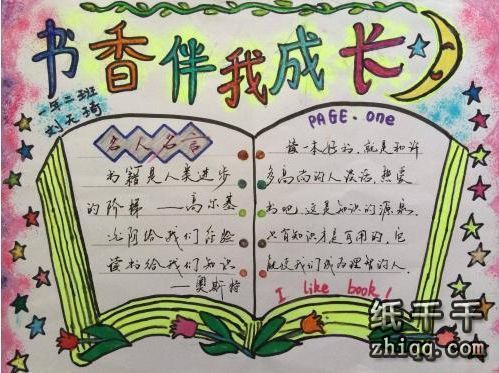 书香伴我成长
一年二班
刘天琦
名人名言
书籍是人类进步
的阶梯 ——高尔基
心阴给我们
读书给我们知识
——奥斯特
PAGE. one
读一本好书，就是和许
多高尚的人谈话，热爱
书吧，这是知识的源泉，
只有知识才是可用的，它
能使我们成为理智的人.
I like book!
纸千千
zhiqq.com